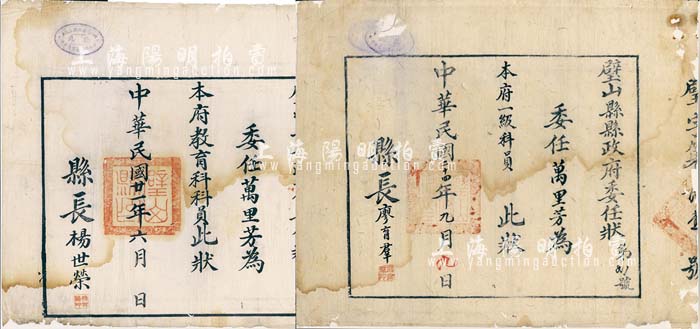 璧山縣縣政府委任狀
委任萬里芳為
本府一級科員 此狀
中華民國 年九月 日
縣長廖育羣
委任萬里芳為
本府教育科科員此狀
中華民國廿一年六月 日
縣長楊世榮
上海陽明拍賣
www.yangmingauction.com
上海陽明拍賣
www.yangmingauction.com